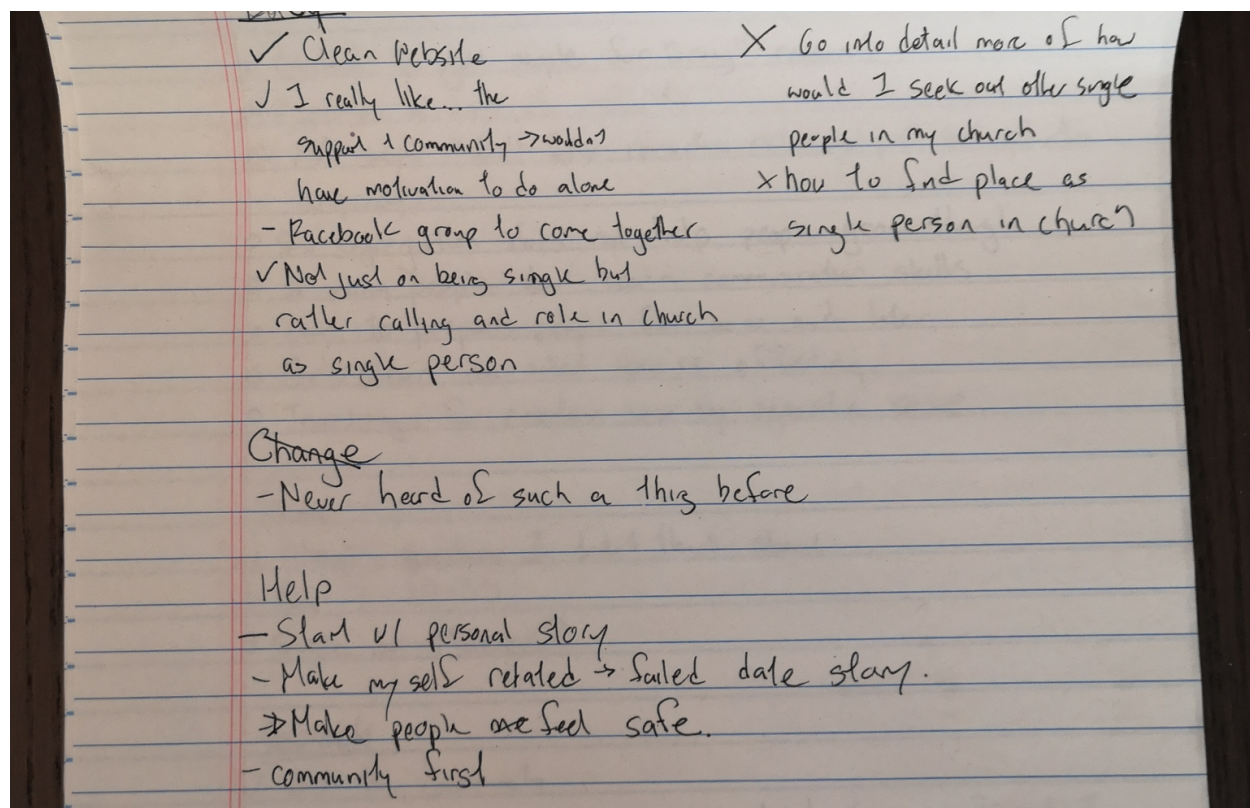 ✓ Clean website
✓ I really like... the
support & community → wouldn't
have motivation to do alone
- Facebook group to come together
✓ Not just on being single but
rather calling and role in church
as single person
X Go into detail more of how
would I seek out other single
people in my church
X how to find place as
single person in church
Change
- Never heard of such a thing before
Help
- Start w/ personal story
- Make my self related → failed date story.
⇒ Make people feel safe.
- community first